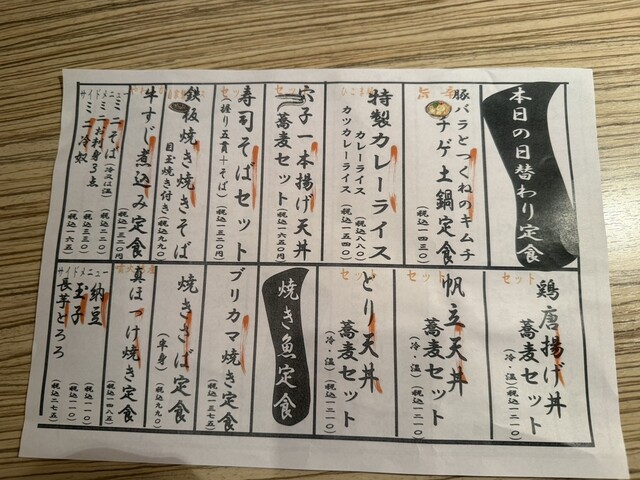 本日の日替わり定食
豚バラとつくねのキムチ
チゲ土鍋定食
(税込一四三〇)
特製カレーライス
カレーライス (税込八八〇)
カツカレーライス (税込一五四〇)
セット
穴子一本揚げ天丼
蕎麦セット
(税込一六五〇円)
セット
寿司そばセット
(握り五貫+そば)
(税込一三二〇円)
鉄板焼き焼きそば
目玉焼き付き
(税込九九〇)
牛すじ煮込み定食
(税込一三二〇円)
サイドメニュー
ミニそば
(冷又は温)
(税込二二〇)
ミニお刺身3点
(税込三三〇)
ミニ冷奴
(税込一六五)
セット
鶏唐揚げ丼
蕎麦セット
(冷・温)
(税込一二一〇)
セット
帆立天丼
蕎麦セット
(冷・温)
(税込一二一〇)
セット
とり天丼
蕎麦セット
(冷・温)
(税込一二一〇)
焼き魚定食
ブリカマ焼き定食
(税込一三七五)
焼きさば定食
(半身)
(税込九九〇)
真ほっけ焼き定食
(税込一四八五)
サイドメニュー
納豆
(税込一一〇)
玉子
(税込一一〇)
長芋とろろ
(税込二七五)